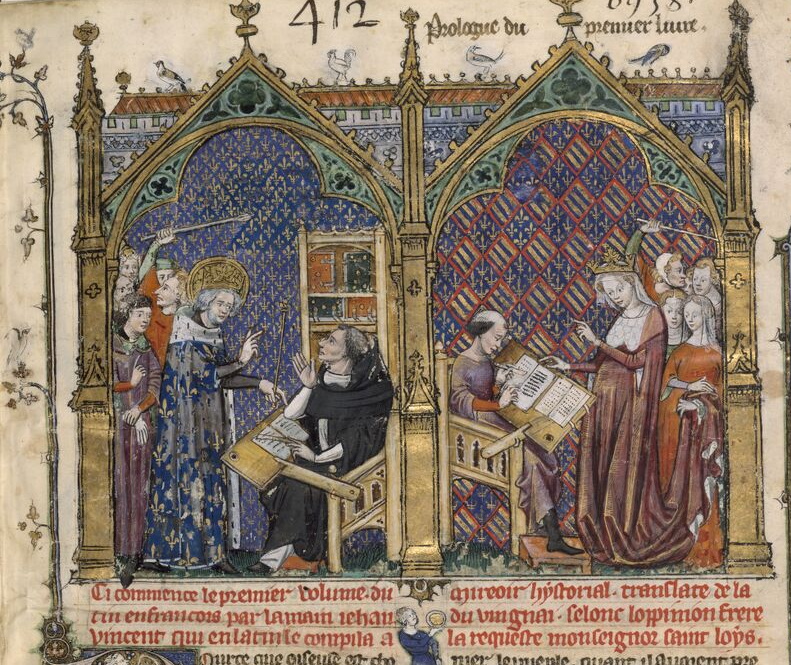 412
Prologue du premier liure.
Ci commence le premier volume du mireoir hystorial. translate de la
tin en francois par la main iehan du vingnai. selonc loppinion frere
vincent qui en latin le compila a la requeste monseignor saint loys.
Pour ce que oiseuse est cho